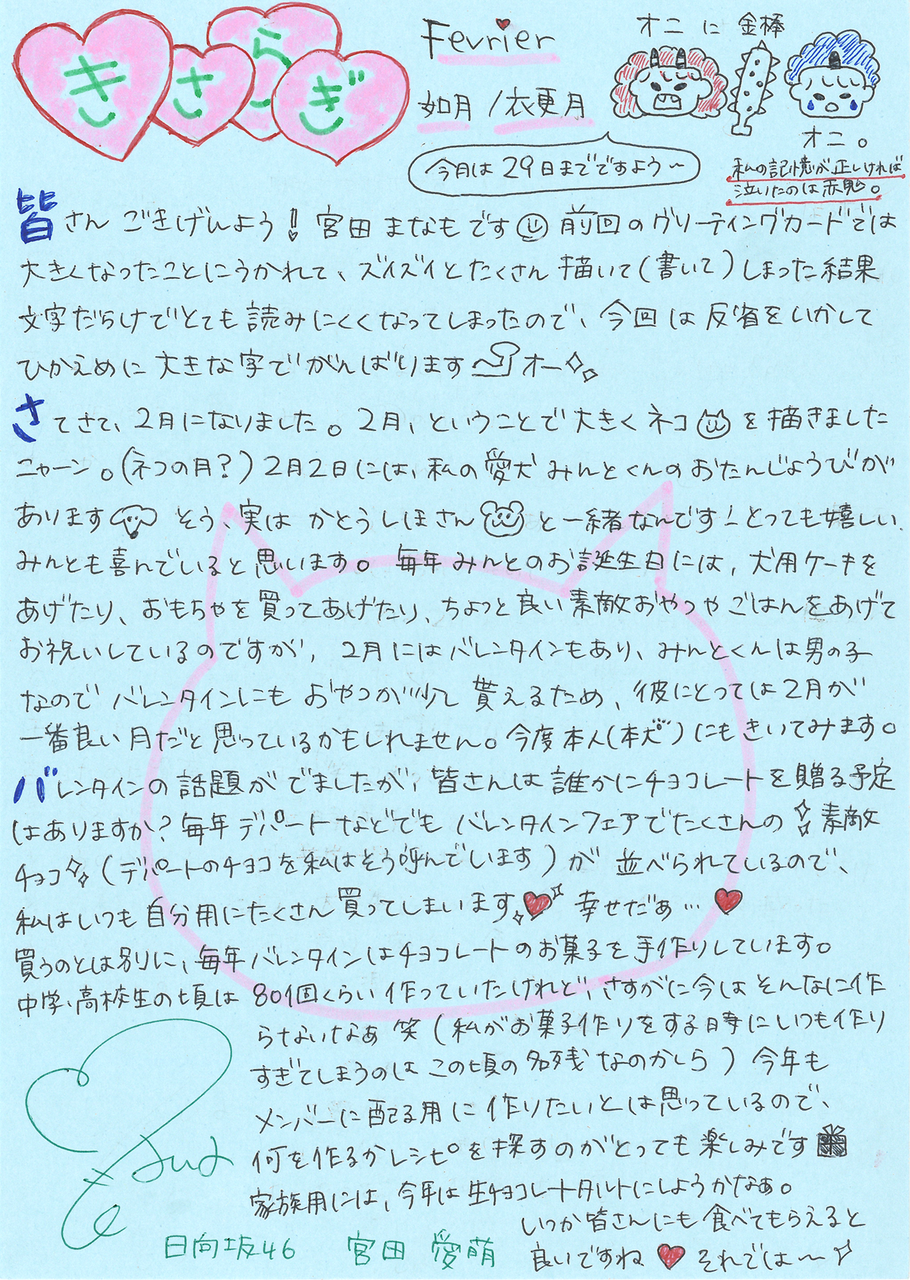 きさらぎ
Fevrier
如月/衣更月
オニに金棒
オニ。
今月は29日までですよう〜
私の記憶が正しければ
泣いたのは赤鬼。
皆さん ごきげんよう! 宮田まなもです 前回のグリーティングカードでは
大きくなったことにうかれて、ズイズイとたくさん描いて(書いて)しまった結果
文字だらけでとても読みにくくなってしまったので、今回は反省をいかして
ひかえめに大きな字でがんばります オー
さてさて、2月になりました。2月、ということで大きくネコを描きました
ニャーン。(ネコの月?)2月2日には、私の愛犬みんとくんのおたんじょうびが
あります そう、実は かとうしほさん と一緒なんです!とっても嬉しい、
みんとも喜んでいると思います。毎年みんとのお誕生日には、犬用ケーキを
あげたり、おもちゃを買ってあげたり、ちょっと良い素敵おやつやごはんをあげて
お祝いしているのですが、2月にはバレンタインもあり、みんとくんは男の子
なのでバレンタインにもおやつが少し貰えるため、彼にとっては2月が
一番良い月だと思っているかもしれません。今度本人(本犬)にもきいてみます。
バレンタインの話題がでましたが、皆さんは誰かにチョコレートを贈る予定
はありますか?毎年デパートなどでもバレンタインフェアでたくさんの素敵
チョコ(デパートのチョコを私はそう呼んでいます)が並べられているので、
私はいつも自分用にたくさん買ってしまいます 幸せだぁ…
買うのとは別に、毎年バレンタインはチョコレートのお菓子を手作りしています。
中学、高校生の頃は80個くらい作っていたけれど、さすがに今はそんなに作
らないなぁ 笑(私がお菓子作りをする時にいつも作り
すぎてしまうのはこの頃の名残なのかしら)今年も
メンバーに配る用に作りたいとは思っているので、
何を作るかレシピを探すのがとっても楽しみです
家族用には、今年は生チョコレートタルトにしようかなぁ。
いつか皆さんにも食べてもらえると
良いですね それでは〜
日向坂46 宮田 愛萌